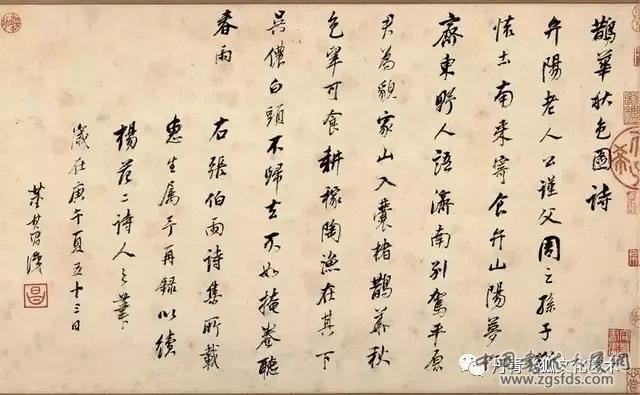 鵲華秋色圖詩
弁陽老人公謹父周之孫子猶
懷土南來寄食弁山陽夢作
齊東野人語濟南別駕平原
君為貌家山入囊楮鵲華秋
色翠可食耕稼陶漁在其下
吳儂白頭不歸去不如掩卷聽
春雨
右張伯雨詩集所載
惠生属予再録以續
楊范二詩人之筆
歲在庚午夏五十三日
董其昌識
昌
www.zgsfds.com